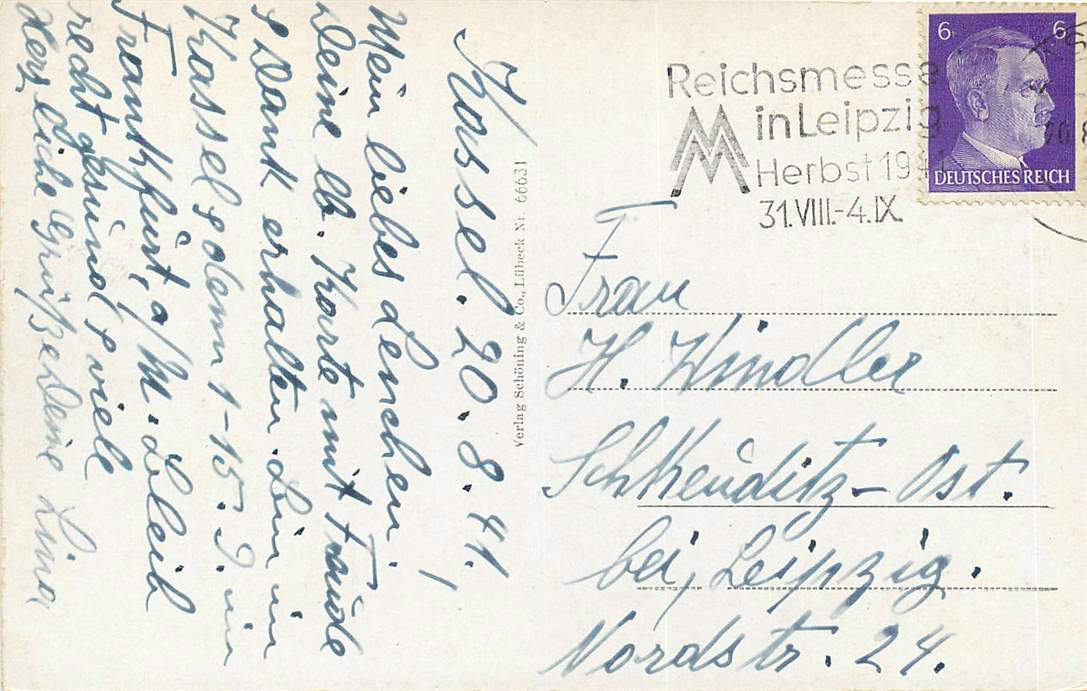 Kassel. 20. 8. 41.
Mein liebes Lenchen!
Deine lb. Karte mit Freude
& Dank erhalten. Bin in
Kassel & dann 1-15. 9. in
Frankfurt, a/M. Bleib
recht gesund, & viele
herzliche Grüße Deine Lina
Verlag Schöning & Co., Lübeck Nr. 66631
Reichsmesse
in Leipzig
Herbst 1941
31.VIII.-4.IX.
6 6
DEUTSCHES REICH
Frau
H. Windler
Schkeuditz-Ost.
bei, Leipzig.
Nordstr. 24.